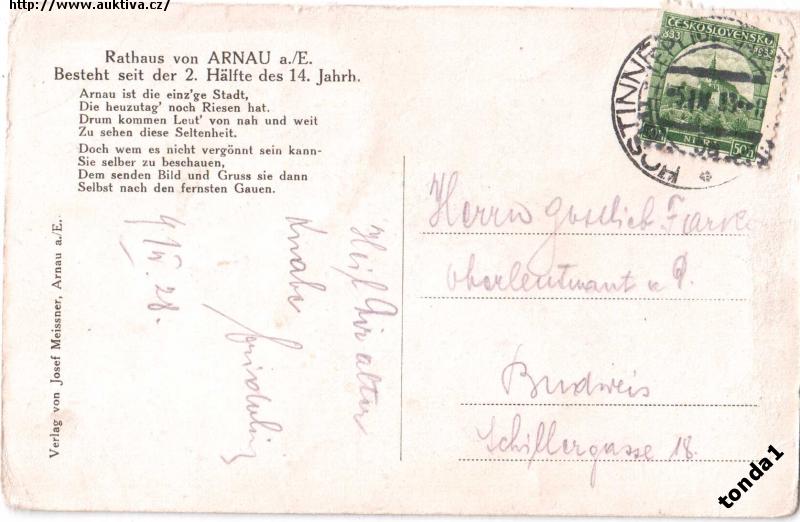 http://www.auktiva.cz/
Rathaus von ARNAU a./E.
Besteht seit der 2. Hälfte des 14. Jahrh.
Arnau ist die einz'ge Stadt,
Die heuzutag' noch Riesen hat.
Drum kommen Leut' von nah und weit
Zu sehen diese Seltenheit.
Doch wem es nicht vergönnt sein kann-
Sie selber zu beschauen,
Dem senden Bild und Gruss sie dann
Selbst nach den fernsten Gauen.
Verlag von Josef Meissner, Arnau a./E.
Heil Dir alter
Knabe
ČESKOSLOVENSKO
833
NITRA
50h
50h
HOSTINNÉ
Herrn Gottlieb
Oberleutnant
Budweis
Schillergasse 18.
tonda1